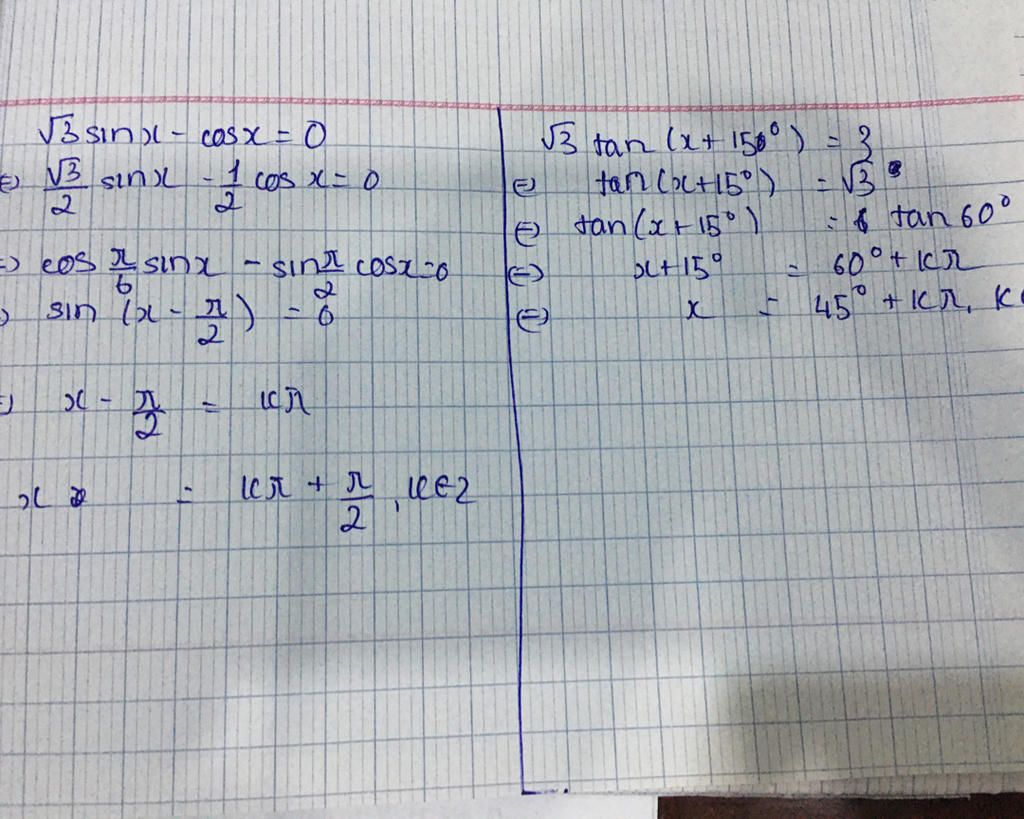 √3 sinx - cosx = 0
⇔ √3/2 sinx - 1/2 cos x = 0
⇔ cos π/6 sinx - sin π/2 cosx = 0
⇔ sin (x - π/2) = 0
⇔ x - π/2 = kπ
x = kπ + π/2, k∈Z
√3 tan (x + 15°) = 3
⇔ tan (x+15°) = √3
⇔ tan (x+15°) = tan 60°
⇔ x+15° = 60° + kπ
⇔ x = 45° + kπ, k∈